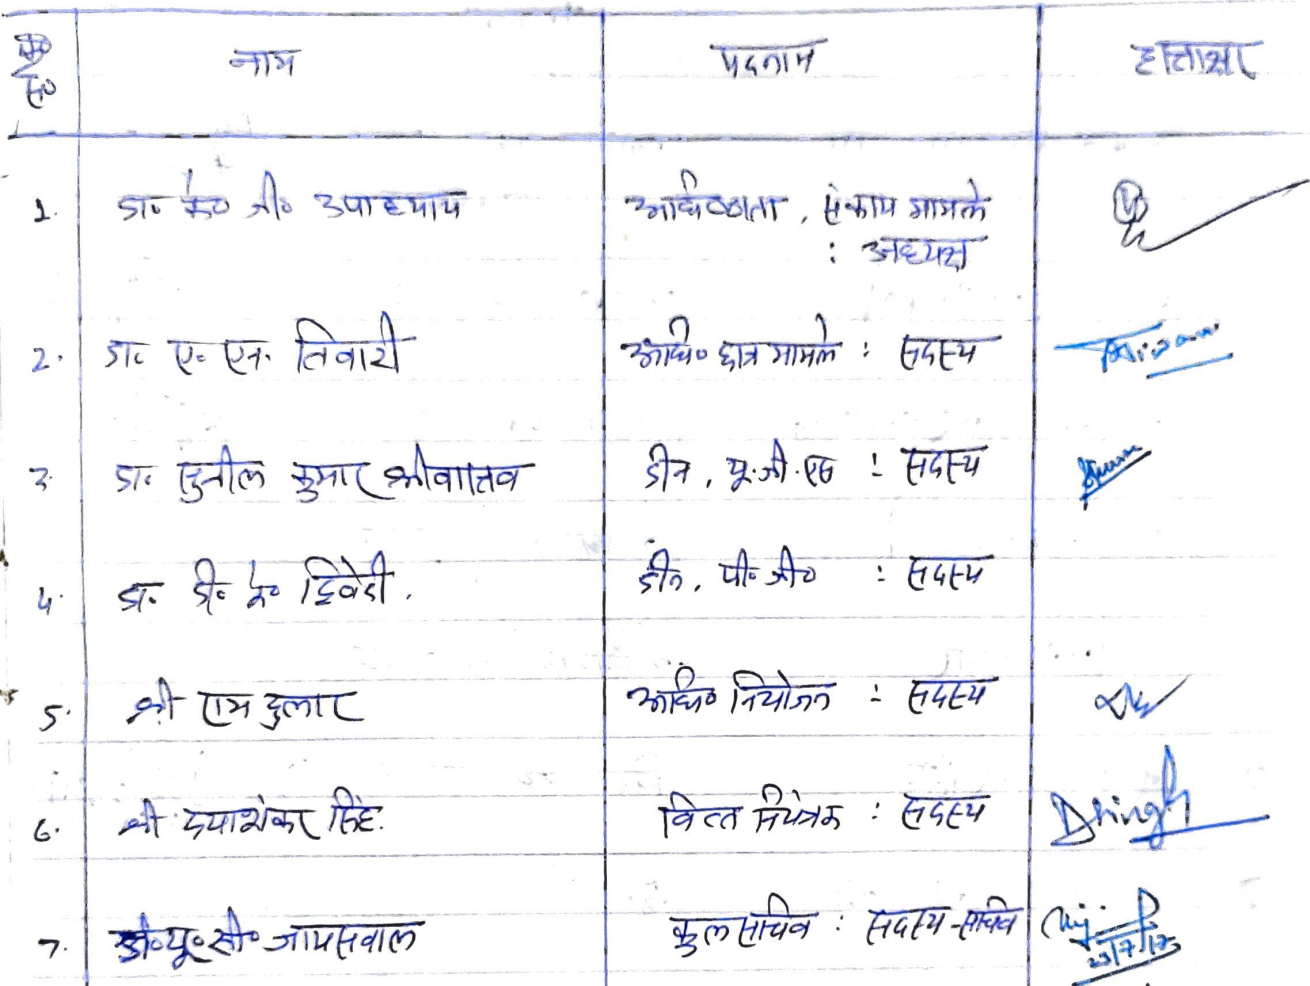 क्र० सं० नाम पदनाम हस्ताक्षर
1. डा० के० जी० उपाध्याय अधिष्ठाता, संकाय मामले
: अध्यक्ष
2. डा० ए० एन. तिवारी अधि० छात्र मामले : सदस्य
3. डा. सुनील कुमार श्रीवास्तव डीन, यू.जी.एस : सदस्य
4. डा. डी. के० द्विवेदी. डीन, पी० जी० : सदस्य
5. श्री राम दुलार अधि० नियोजन : सदस्य
6. श्री दयाशंकर सिंह. वित्त नियंत्रक : सदस्य Dsingh
7. यू० सी० जायसवाल कुलसचिव : सदस्य-सचिव